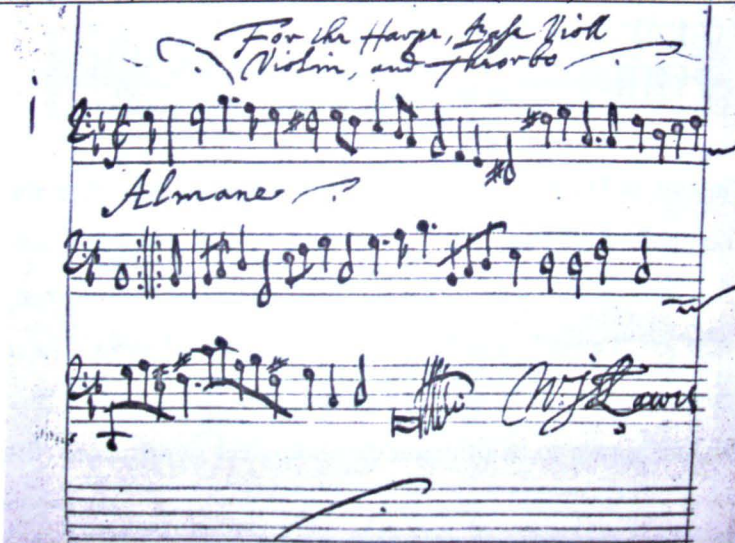 For the Harpe, Base Violl
Violin, and Theorbo
i
Almane
W: Lawes